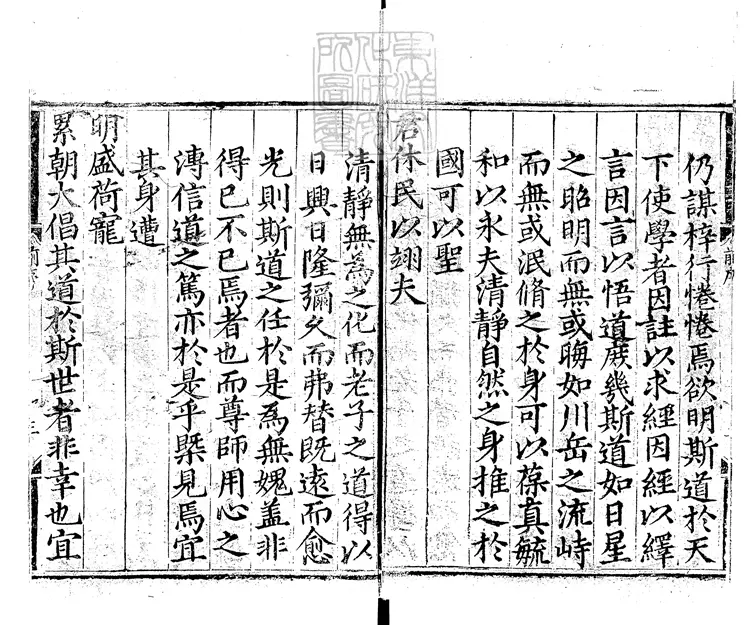 仍謀梓行惓惓焉欲明斯道於天
下使學者因註以求經因經以繹
言因言以悟道蕨幾斯道如日星
之昭明而無或晦如川岳之流峙
而無或泯脩之於身可以葆真毓
和以永夫清靜自然之身推之於
國可以聖
君休民以翊夫
清靜無為之化而老子之道得以
日興日隆彌久而弗替既遠而愈
光則斯道之任於是為無媿盖非
得已不已焉者也而尊師用心之
溥信道之篤亦於是乎槩見焉宜
其身遭
明盛荷寵
累朝大倡其道於斯世者非幸也宜
前序
前序